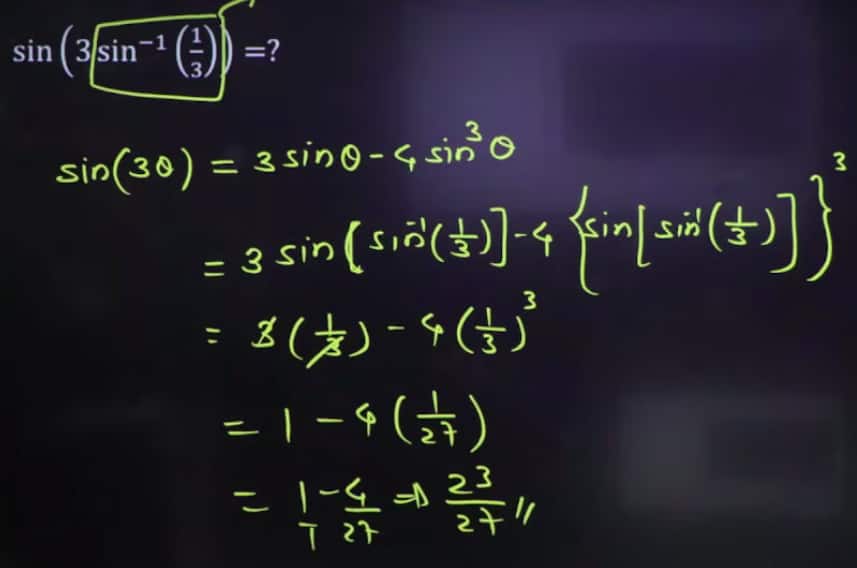 sin(3 sin⁻¹(1/3)) =?
sin(3θ) = 3 sinθ - 4 sin³θ
= 3 sin[sin⁻¹(1/3)] - 4 {sin[sin⁻¹(1/3)]}³
= 3(1/3) - 4(1/3)³
= 1 - 4(1/27)
= 1/1 - 4/27 ⇒ 23/27 //